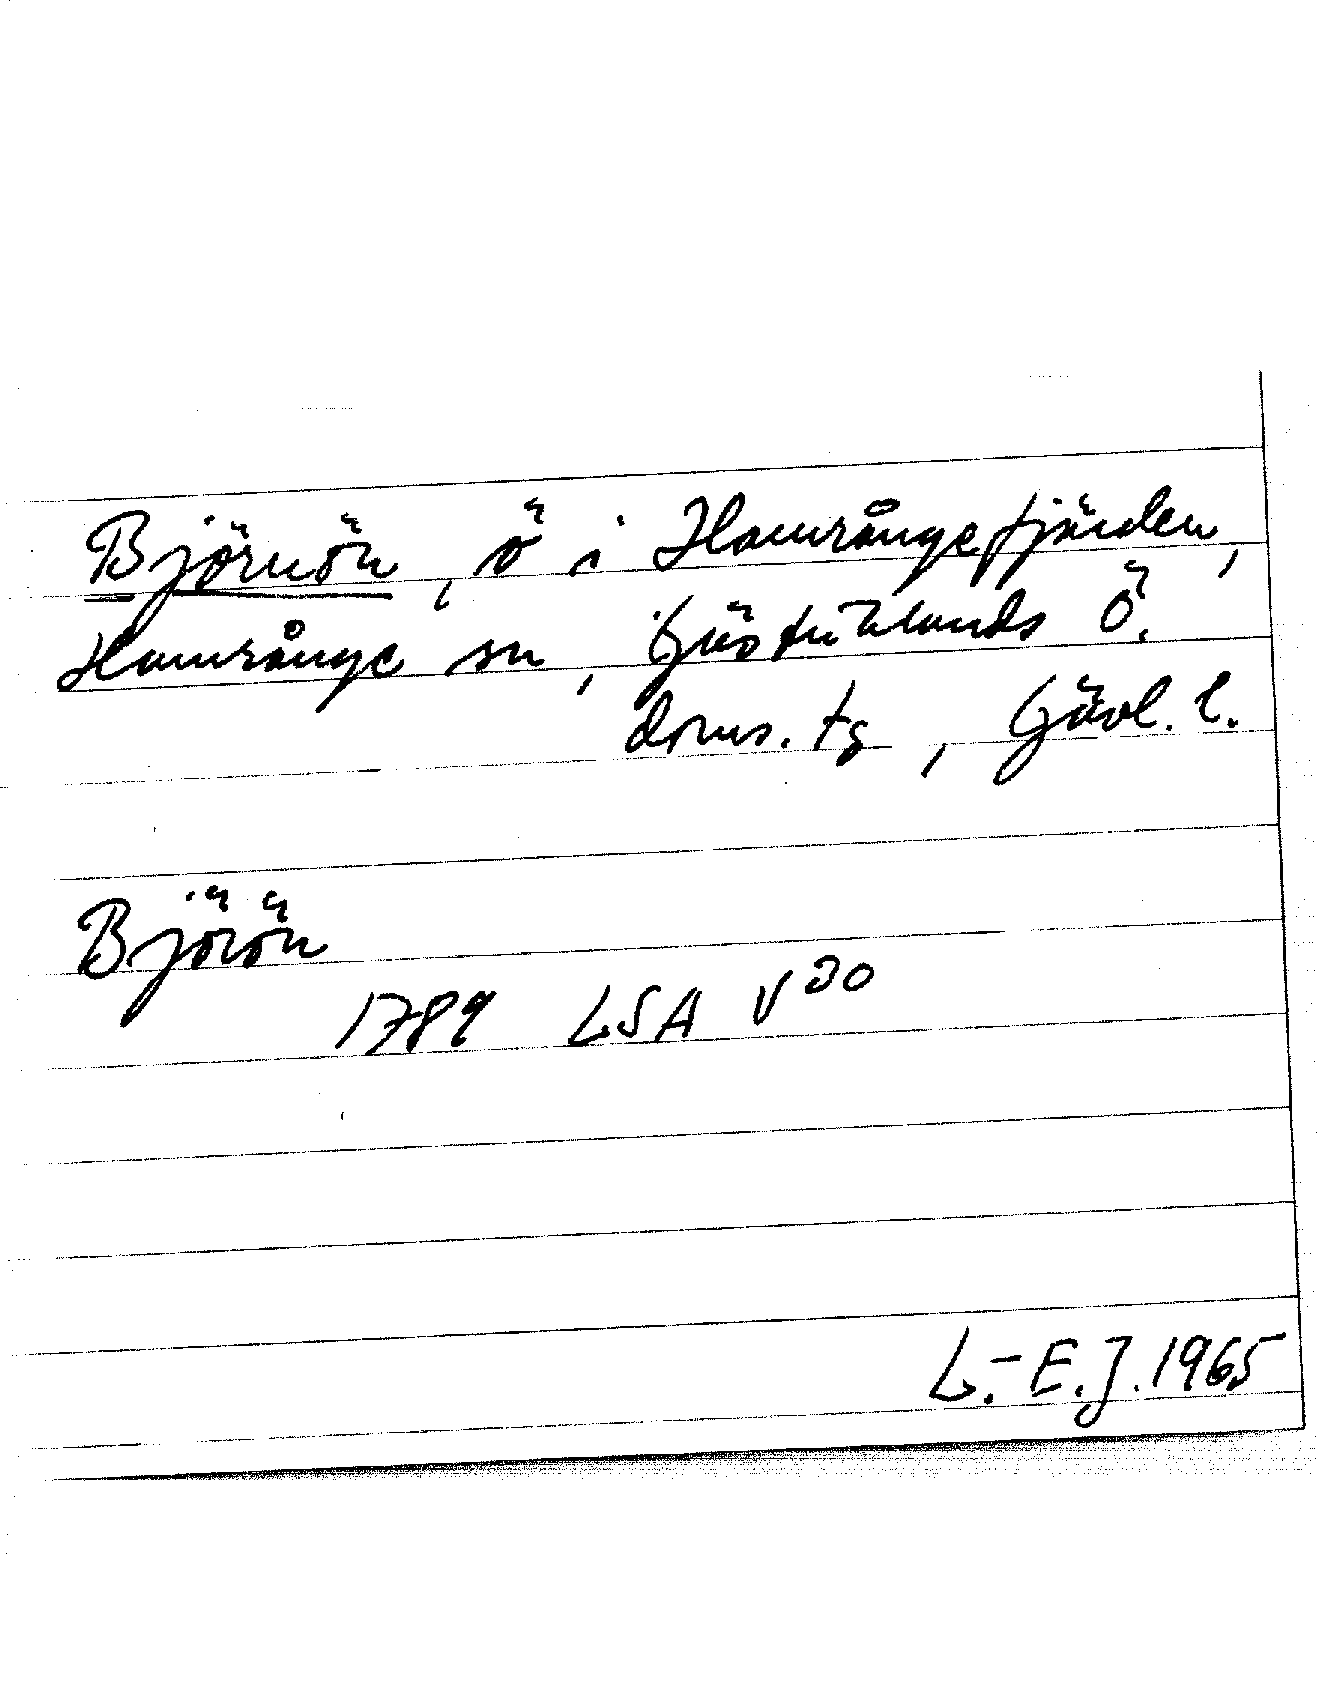 Björnön, ö i Hamrångefjärden,
Hamrånge sn, Gästriklands Ö.
doms. tg, Gävl. l.
Björön
1789 LSA V 30
L.-E.J. 1965